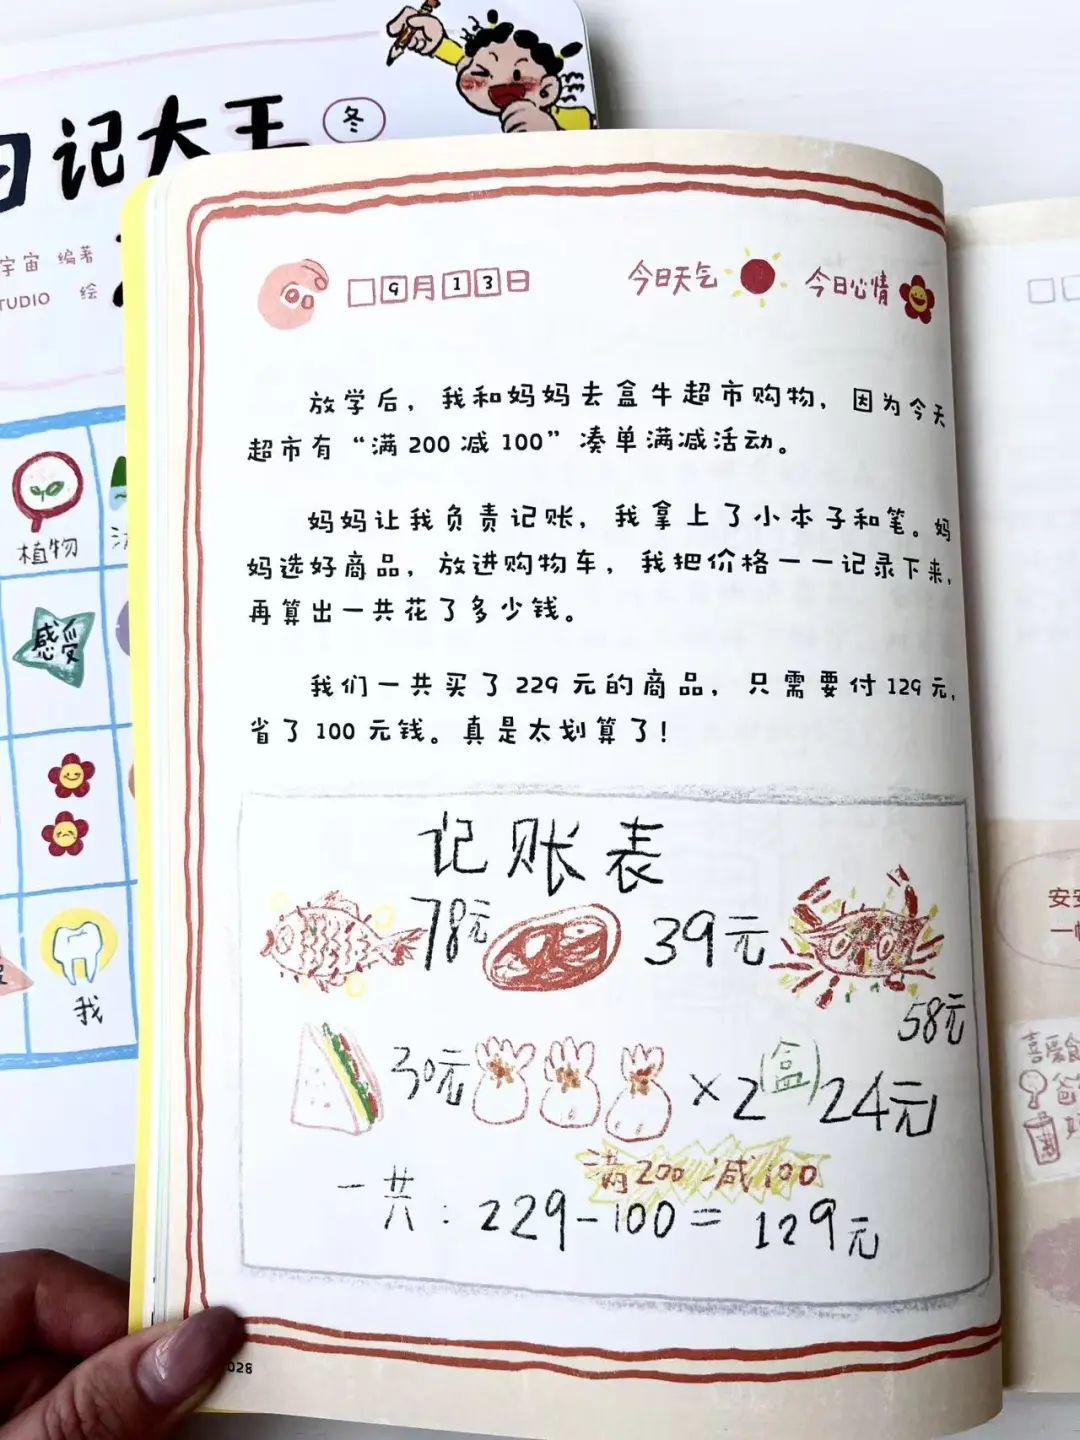 日记大王 冬
宇宙 编著
TUDIO 绘
植物
感受
我
9月13日 今日天气 今日心情
放学后，我和妈妈去盒牛超市购物，因为今天
超市有“满200减100”凑单满减活动。
妈妈让我负责记账，我拿上了小本子和笔。妈
妈选好商品，放进购物车，我把价格一一记录下来，
再算出一共花了多少钱。
我们一共买了229元的商品，只需要付129元，
省了100元钱。真是太划算了！
记账表
78元 39元
58元
30元 ×2(盒) 24元
满200减100
一共：229-100=129元
028
安
一
喜爱食
爸